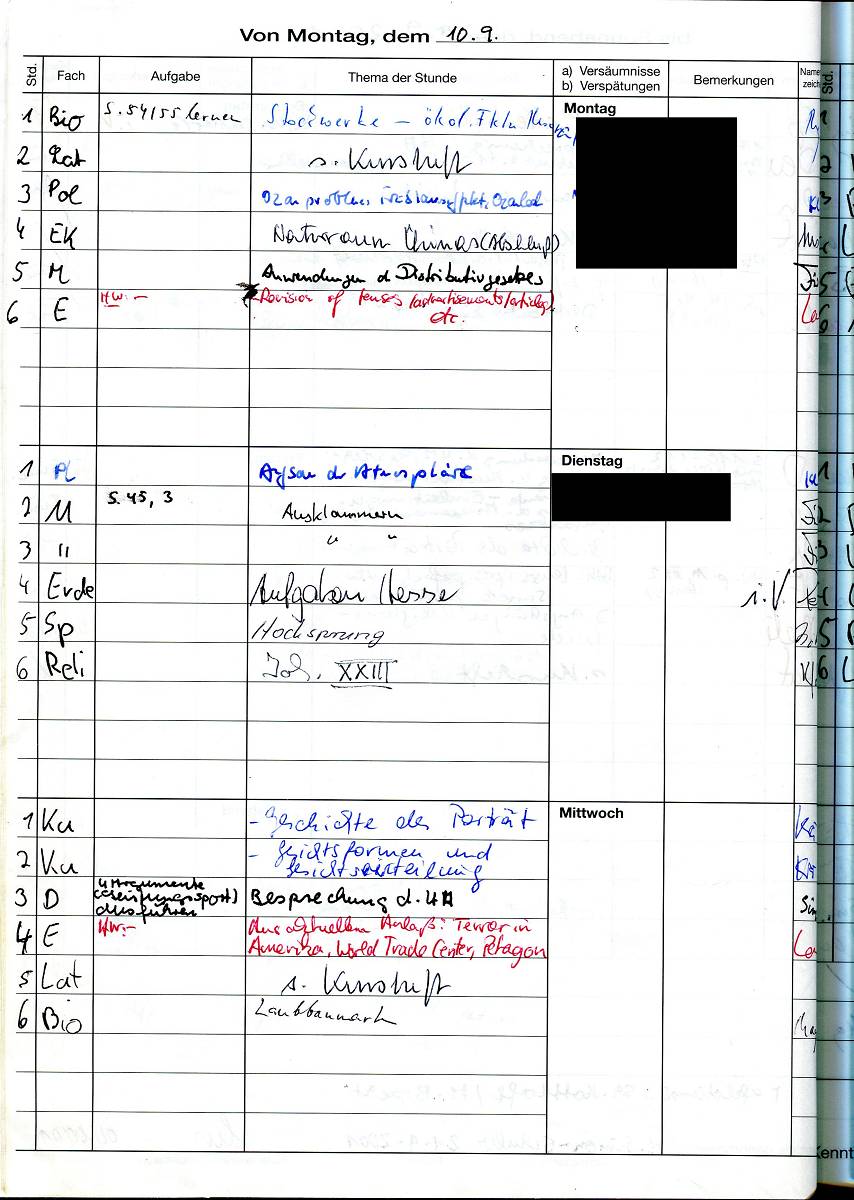 Von Montag, dem 10.9.
Std. Fach Aufgabe Thema der Stunde a) Versäumnisse b) Verspätungen Bemerkungen
Montag
1 Bio S. 54/55 lernen Stockwerke – ökol. Fktn
2 Lat s. Kursheft
3 Pol
4 EK Naturraum Chinas
5 M Anwendungen d Distributivgesetzes
6 E HW: – Revision of tenses
etc.
Dienstag
1 PL Aufbau der Atmosphäre
2 M S. 45, 3 Ausklammern
3 " " "
4 Erde Aufgaben Hesse i.V.
5 Sp Hochsprung
6 Reli Joh. XXIII
Mittwoch
1 Ku - Geschichte des Porträt
2 Ku - Gesichtsformen und
Gesichtseinteilung
3 D ausführen Besprechung d. HA
4 E HW:- Aus aktuellem Anlaß: Terror in
Amerika, World Trade Center, Petagon
5 Lat s. Kursheft
6 Bio Laubbaumark